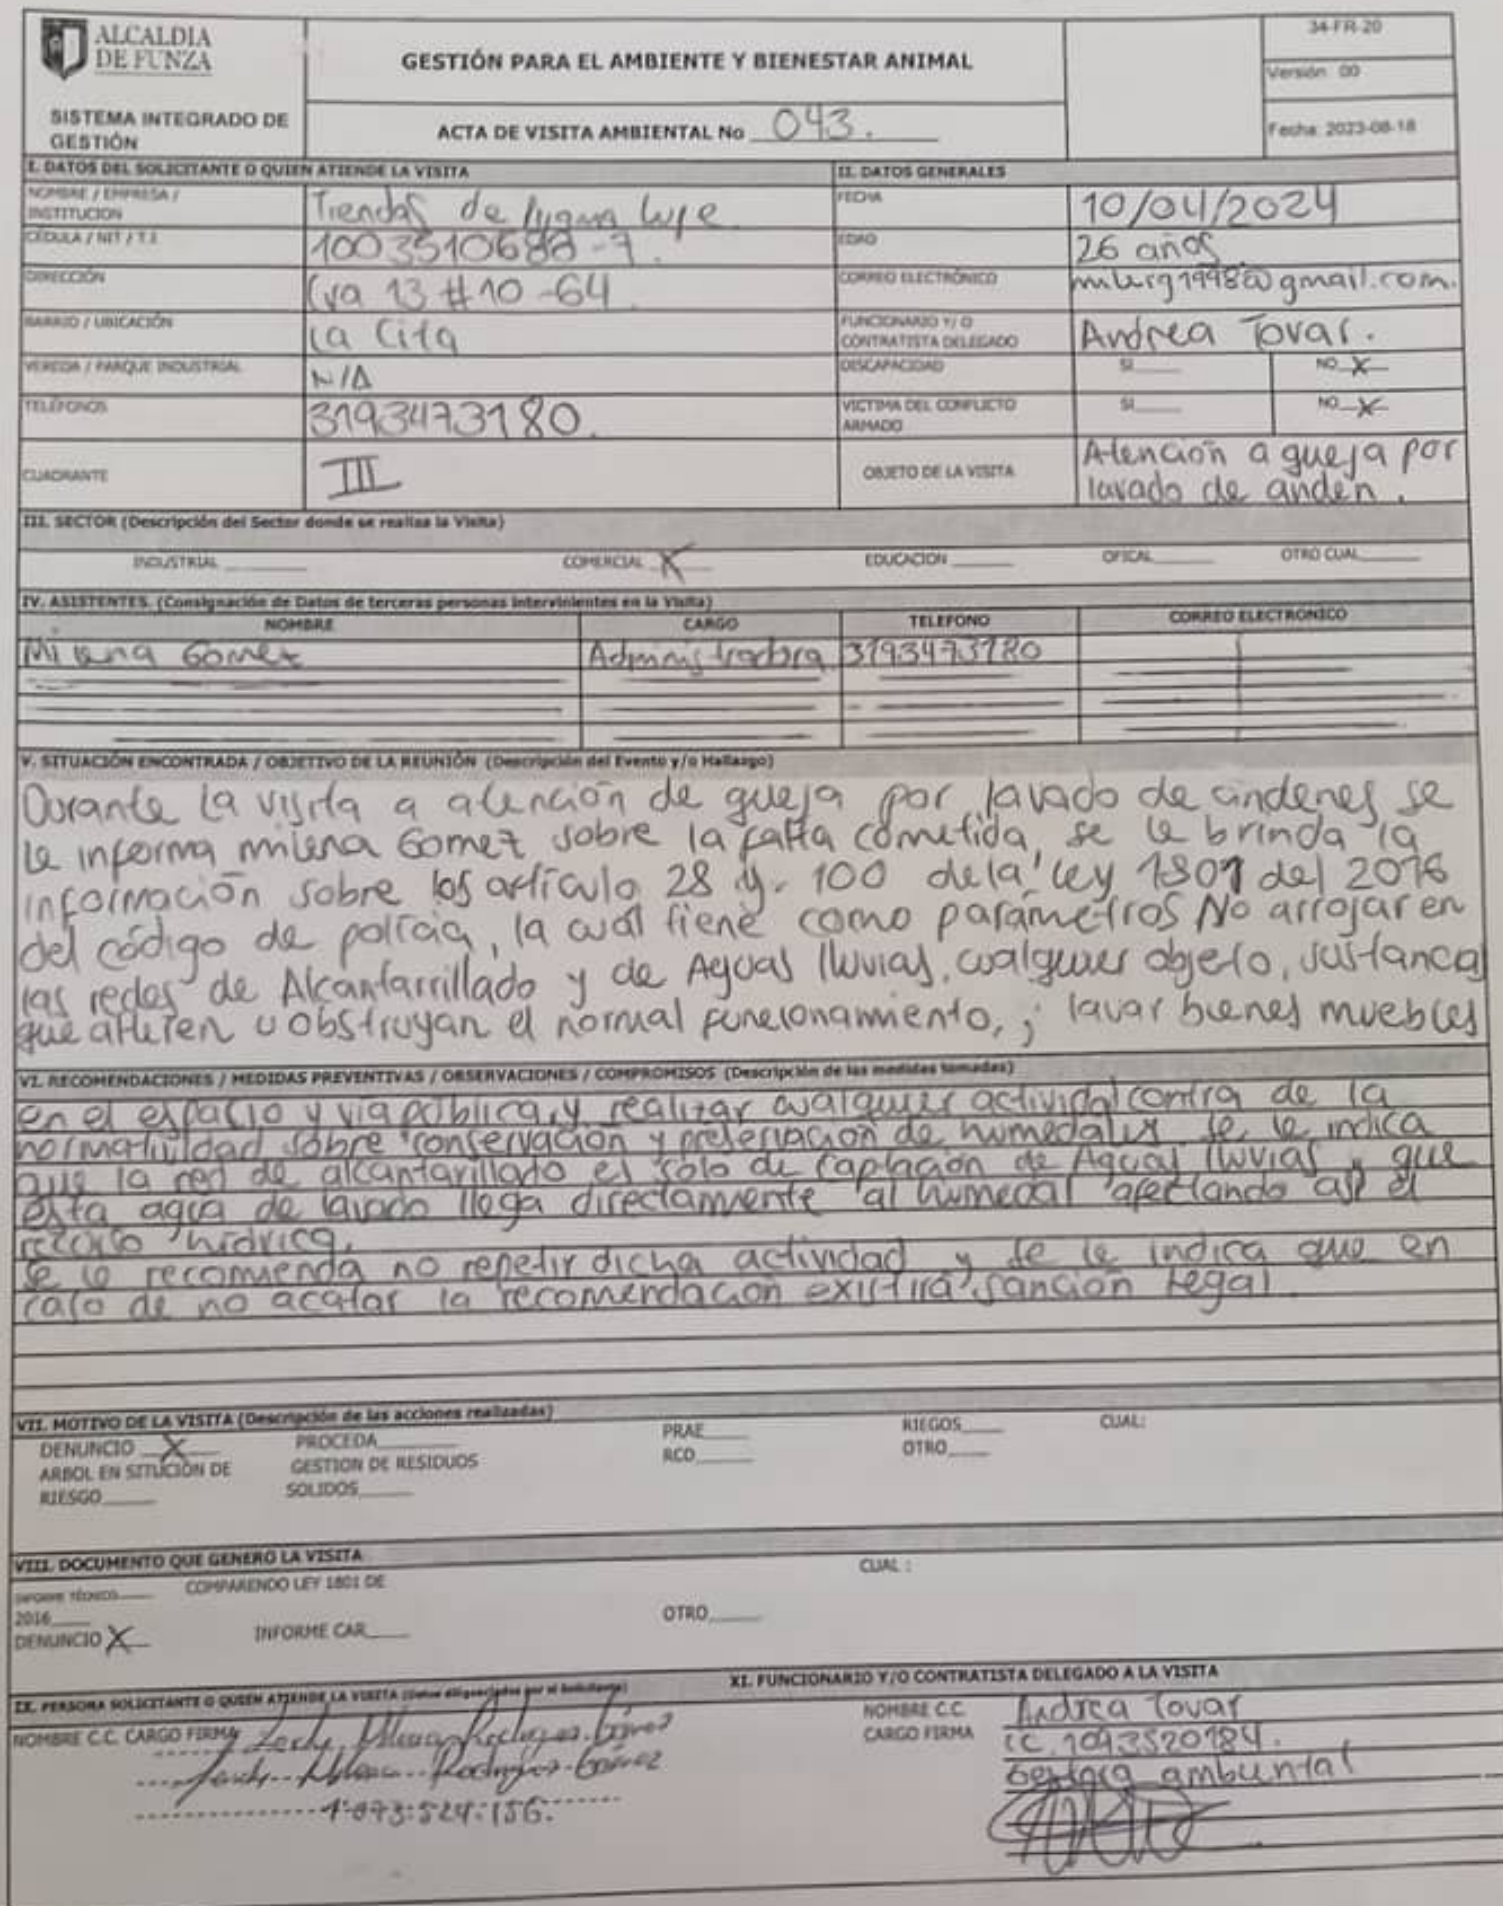 ALCALDIA
DE FUNZA
SISTEMA INTEGRADO DE
GESTIÓN
GESTIÓN PARA EL AMBIENTE Y BIENESTAR ANIMAL
ACTA DE VISITA AMBIENTAL No 043.
34-FR-20
Versión 00
Fecha: 2023-08-18
I. DATOS DEL SOLICITANTE O QUIEN ATIENDE LA VISITA
II. DATOS GENERALES
NOMBRE / EMPRESA /
INSTITUCION
Tiendas de
FECHA 10/04/2024
CÉDULA / NIT / T.I 1003510688-7.
EDAD 26 años.
DIRECCIÓN Cra 13 #10-64
CORREO ELECTRÓNICO @gmail.com.
BARRIO / UBICACIÓN La Cita
FUNCIONARIO Y/O
CONTRATISTA DELEGADO Andrea Tovar.
VEREDA / PARQUE INDUSTRIAL N/A
DISCAPACIDAD SI____ NO X
TELÉFONOS 3193473180.
VICTIMA DEL CONFLICTO
ARMADO SI____ NO X
CUADRANTE III
OBJETO DE LA VISITA Atención a queja por
lavado de anden.
III. SECTOR (Descripción del Sector donde se realiza la Visita)
INDUSTRIAL ____ COMERCIAL X EDUCACIÓN ____ OFICAL ____ OTRO CUAL ____
IV. ASISTENTES. (Consignación de Datos de terceras personas intervinientes en la Visita)
NOMBRE CARGO TELEFONO CORREO ELECTRÓNICO
Milena Gomez Administradora 3193473180
V. SITUACIÓN ENCONTRADA / OBJETIVO DE LA REUNIÓN (Descripción del Evento y/o Hallazgo)
Durante la visita a atención de queja por lavado de andenes se
le informa milena Gomez sobre la falta cometida, se le brinda la
información sobre los artículo 28 y. 100 de la ley 1801 del 2016
del código de policía, la cuál tiene como parámetros No arrojar en
las redes de Alcantarrillado y de Aguas lluvias, cualquier objeto, sustancas
que alteren u obstruyan el normal funcionamiento, ; lavar bienes muebles
VI. RECOMENDACIONES / MEDIDAS PREVENTIVAS / OBSERVACIONES / COMPROMISOS (Descripción de las medidas tomadas)
en el espacio y via pública, y realizar cualquier actividad contra de la
normatividad sobre conservación y preservación de humedales. se le indica
que la red de alcantarillado es solo de captación de Aguas lluvias y que
esta agua de lavado llega directamente al humedal afectando así el
recurso hidrico.
Se le recomienda no repetir dicha actividad y se le indica que en
caso de no acatar la recomendación existirá sanción legal.
VII. MOTIVO DE LA VISITA (Descripción de las acciones realizadas)
DENUNCIO X PROCEDA____ PRAE____ RIEGOS____ CUAL:
ARBOL EN SITUCIÓN DE GESTION DE RESIDUOS RCD____ OTRO____
RIESGO____ SOLIDOS____
VIII. DOCUMENTO QUE GENERO LA VISITA
CUAL :
INFORME TÉCNICO____ COMPARENDO LEY 1801 DE
2016____
OTRO____
DENUNCIO X INFORME CAR____
IX. PERSONA SOLICITANTE O QUIEN ATIENDE LA VISITA (Datos diligenciados por el Solicitante)
XI. FUNCIONARIO Y/O CONTRATISTA DELEGADO A LA VISITA
NOMBRE C.C. CARGO FIRMA Milena Rodriguez Gómez
Milena Rodriguez Gómez
1.073.524.156.
NOMBRE C.C. Andrea Tovar
CARGO FIRMA CC. 1093520184.
Gestora ambiental